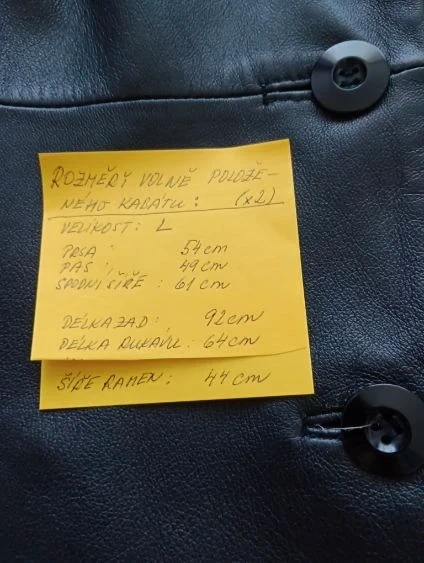 ROZMĚRY VOLNĚ POLOŽE-
NÉHO KABÁTU: (x2)
VELIKOST: L
PRSA : 54cm
PAS : 49cm
SPODNÍ ŠÍŘE : 61cm
DÉLKA ZAD : 92cm
DÉLKA RUKÁVU: 64cm
ŠÍŘE RAMEN : 44cm